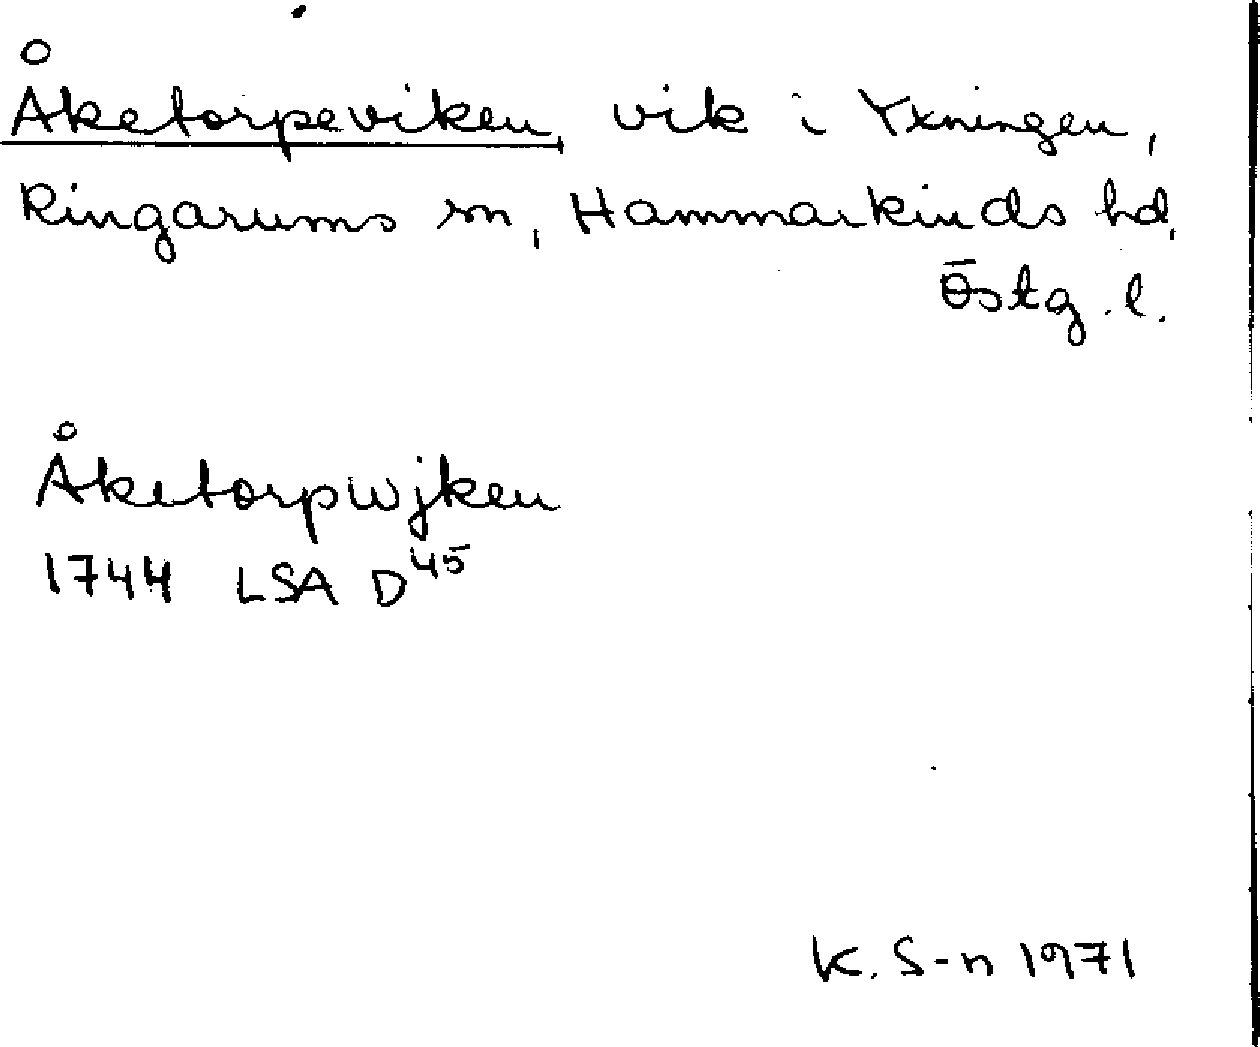 Åketorpeviken, vik i Yxningen,
Ringarums sn, Hammarkinds hd,
Östg. l.
Åketorpwjken
1744 LSA D45
K. S-n 1971